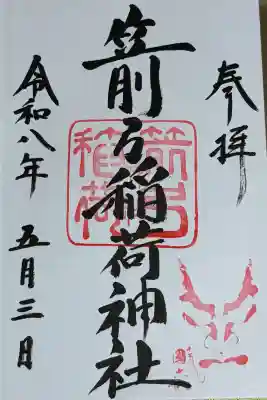 奉拝
箭弓稲荷神社
箭弓
稲荷
令和八年 五月三日